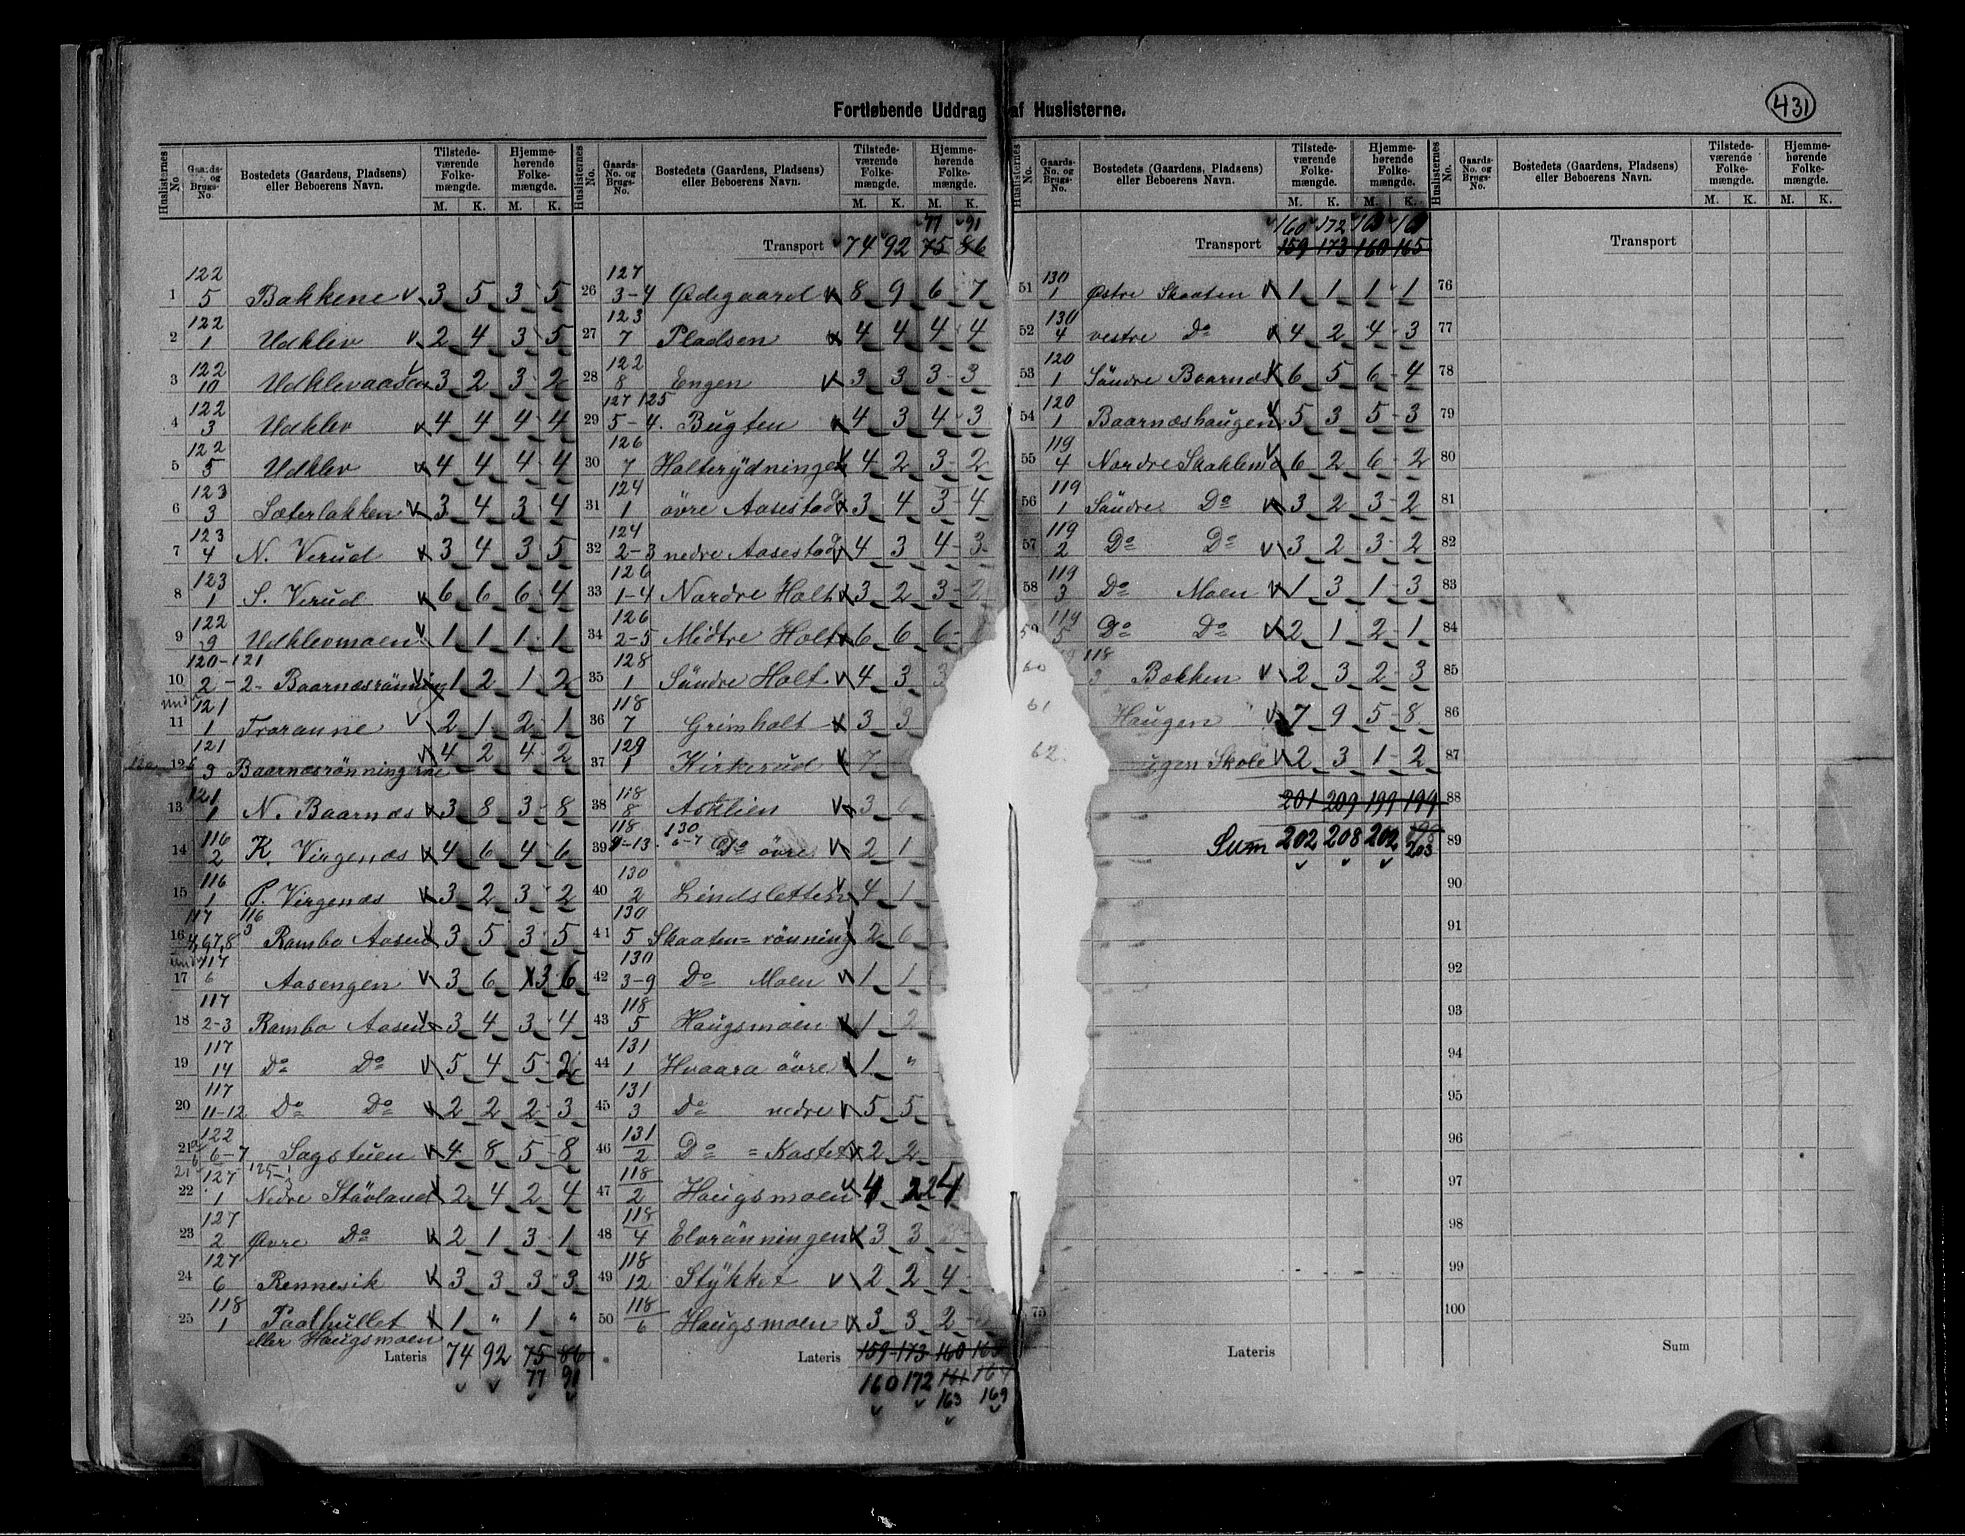 Fortløbende Uddrag af Huslisterne.
431
Huslisternes No. | Gaards-No. og Brugs-No. | Bostedets (Gaardens, Pladsens) eller Beboerens Navn. | Tilstedeværende Folkemængde. M. K. | Hjemmehørende Folkemængde. M. K.
1 122/5 Bakkene 3 5 3 5
2 122/1 Udklev 2 4 3 5
3 122/10 Udklevaasen 3 2 3 2
4 122/3 Udklev 4 4 4 4
5 122/5 Udklev 4 4 4 4
6 123/3 Sæterlökken 3 4 3 4
7 123/4 N. Verud 3 4 3 5
8 123/1 S. Verud 6 6 6 4
9 122/9 Udklevmoen 1 1 1 1
10 120-121/2-2 Baarnæsrönning 1 2 1 2
11 121/1 Traranne 2 1 2 1
12 121/3 Baarnæsrönningerne 4 2 4 2
13 121/1 N. Baarnæs 3 8 3 8
14 116/2 K. Virgenæs 4 6 4 6
15 116/1 P. Virgenæs 3 2 3 2
16 117 116/3 4,6 7,8 Rambo Aasen 3 5 3 5
17 117/6 Aasengen 3 6 3 6
18 117/2-3 Rambo Aasen 3 4 3 4
19 117/14 Do Do 5 4 5 2
20 117/11-12 Do Do 2 2 2 3
21 122/6-7 Sagstuen 4 8 5 8
22 127/1 125 Nedre Stävland 2 4 2 4
23 127/2 Øvre Do 2 1 3 1
24 127/6 Rennesik 3 3 3 3
25 118/1 Paalhullet 1 " 1 "
eller Haugsmoen
Lateris 74 92 75 86
77 91
Huslisternes No. | Gaards-No. og Brugs-No. | Bostedets (Gaardens, Pladsens) eller Beboerens Navn. | Tilstedeværende Folkemængde. M. K. | Hjemmehørende Folkemængde. M. K.
77 91
Transport 74 92 75 86
26 127/3-4 Ødegaard 8 9 6 7
27 123/7 Pladsen 4 4 4 4
28 122/8 Engen 3 3 3 3
29 127 125/5-4. Bugten 4 3 4 3
30 126/7 Holterydningen 4 2 3 2
31 124/1 övre Aasestad 3 4 3 4
32 124/2-3 nedre Aasestad 4 3 4 3
33 126/1-4 Nordre Holt 3 2 3 2
34 126/2-5 Midtre Holt 6 6 6
35 128/1 Söndre Holt 4 3 3
36 118/7 Grimholt 3 3
37 129/1 Kirkerud 7
38 118/8 Asklien 3 6
39 118/9-13. 130/6-7 Do övre 2 1
40 130/2 Lindsletten 4 1
41 130/5 Skaaten=rönning 2 6
42 130/3-9 Do Moen 1 1
43 118/5 Haugsmoen 1 2
44 131/1 Hvaara övre 1 "
45 131/3 Do nedre 5 5
46 131/2 Do = Kastet 2 2
47 118/2 Haugsmoen 4 2 4
48 118/4 Elvrönningen 3 3
49 118/12 Stykket 2 2 4
50 118/6 Haugsmoen 3 3 2
Lateris 159 173 160 165
160 172 161 164
163 169
Huslisternes No. | Gaards-No. og Brugs-No. | Bostedets (Gaardens, Pladsens) eller Beboerens Navn. | Tilstedeværende Folkemængde. M. K. | Hjemmehørende Folkemængde. M. K.
160 172
Transport 159 173 160 165
51 130/1 Østre Skaaten 1 1 1 1
52 130/4 vestre Do 4 2 4 3
53 120/1 Söndre Baarnæs 6 5 6 4
54 120/1 Baarnæshaugen 5 3 5 3
55 119/4 Nordre Skoklem 6 2 6 2
56 119/1 Söndre Do 3 2 3 2
57 119/2 Do Do 3 2 3 2
58 119/3 Do Moen 1 3 1 3
59 119/5 Do Do 2 1 2 1
60 118/3 Bakken 2 3 2 3
61 Haugen " 7 9 5 8
62. ugen Skole 2 3 1 2
201 209 199 199
Sum 202 208 202 203
75
Lateris
Huslisternes No. | Gaards-No. og Brugs-No. | Bostedets (Gaardens, Pladsens) eller Beboerens Navn. | Tilstedeværende Folkemængde. M. K. | Hjemmehørende Folkemængde. M. K.
Transport
76
77
78
79
80
81
82
83
84
85
86
87
88
89
90
91
92
93
94
95
96
97
98
99
100
Sum